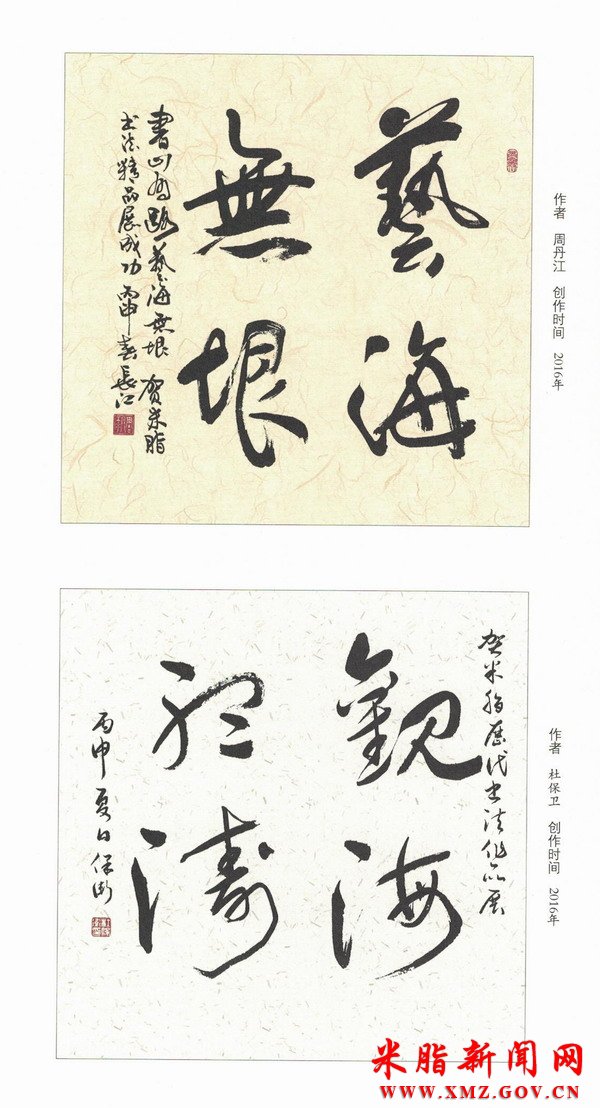 藝海
無垠
書山有路 藝海無垠 賀米脂
書法精品展成功 丙申春 長江
作者 周丹江 创作时间 2016年
賀米脂歷代書法作品展
觀海
聽濤
丙申夏日保衛
作者 杜保卫 创作时间 2016年
米脂新闻网
WWW.XMZ.GOV.CN